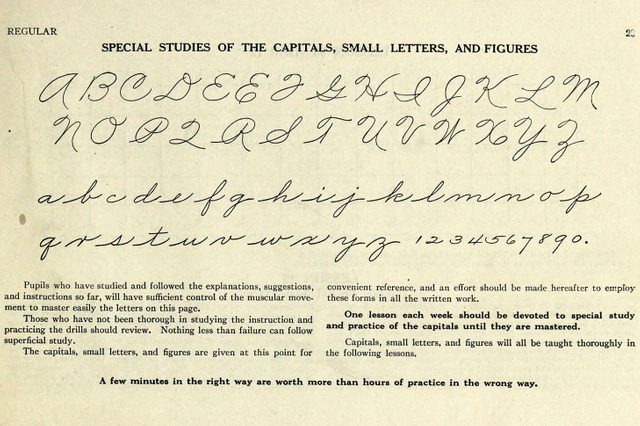 REGULAR
SPECIAL STUDIES OF THE CAPITALS, SMALL LETTERS, AND FIGURES
A B C D E E F G H I J K L M
N O P Q R S T U V W X Y Z
a b c d e f g h i j k l m n o p
q r s t u v w x y z 1 2 3 4 5 6 7 8 9 0.
Pupils who have studied and followed the explanations, suggestions,
and instructions so far, will have sufficient control of the muscular move-
ment to master easily the letters on this page.
Those who have not been thorough in studying the instruction and
practicing the drills should review. Nothing less than failure can follow
superficial study.
The capitals, small letters, and figures are given at this point for
convenient reference, and an effort should be made hereafter to employ
these forms in all the written work.
One lesson each week should be devoted to special study
and practice of the capitals until they are mastered.
Capitals, small letters, and figures will all be taught thoroughly in
the following lessons.
A few minutes in the right way are worth more than hours of practice in the wrong way.